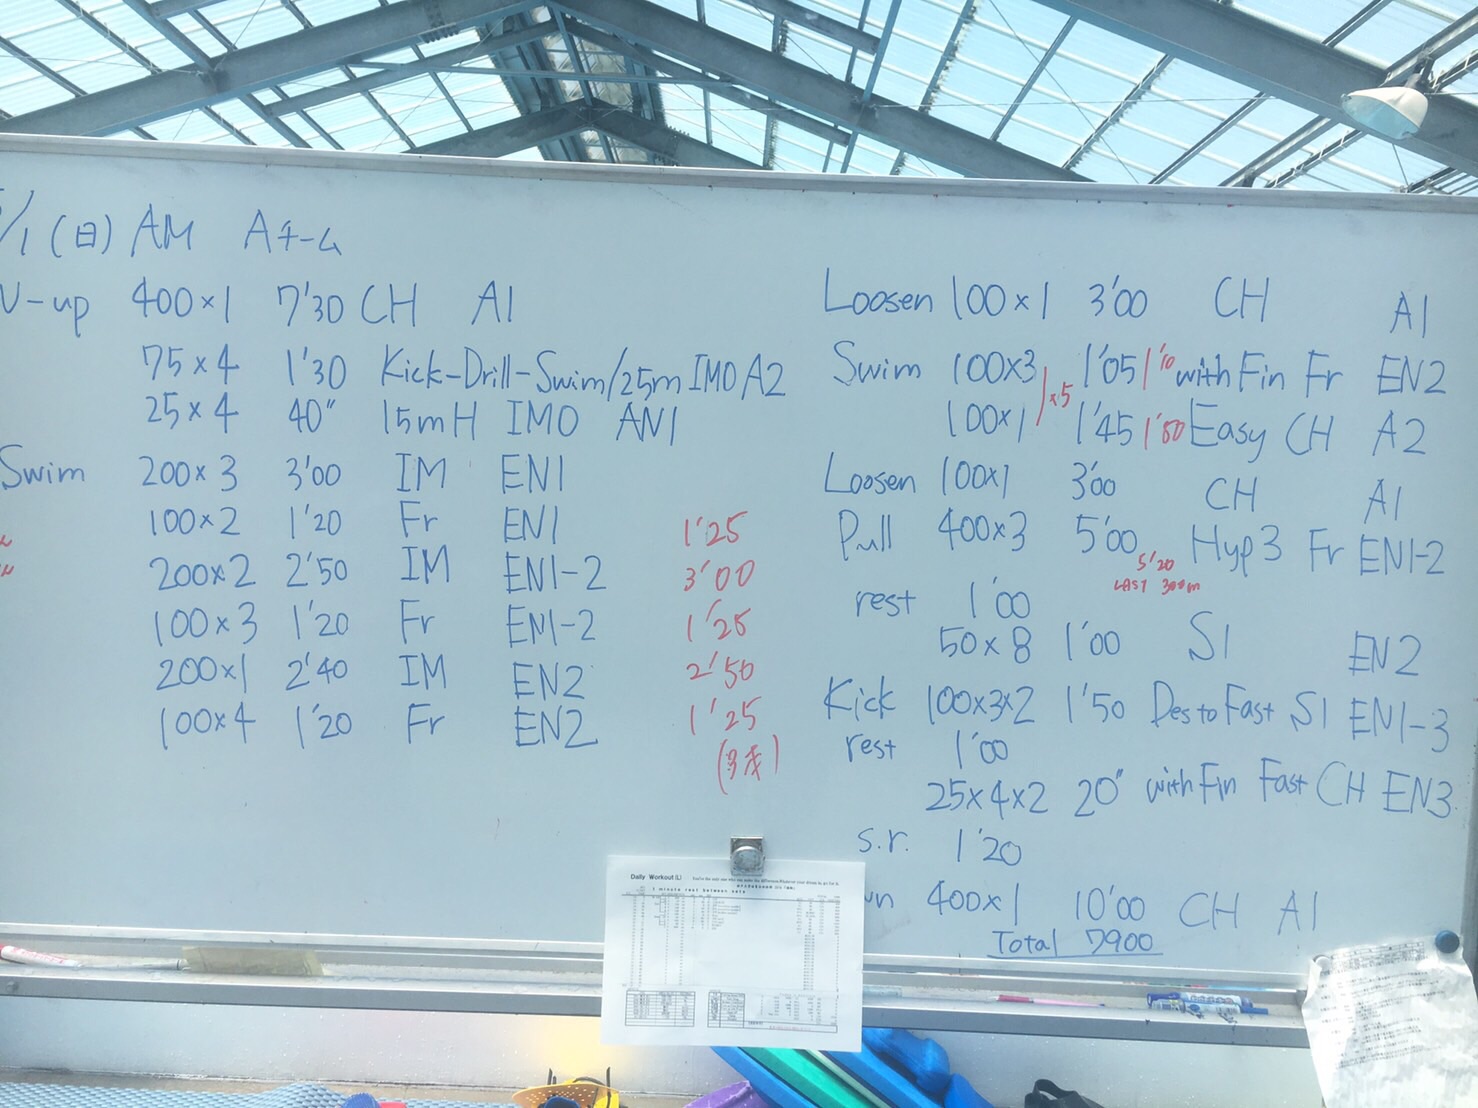 /1 (日) AM Aチーム
W-up 400×1 7'30 CH A1
75×4 1'30 Kick-Drill-Swim/25m IMO A2
25×4 40" 15mH IMO AN1
Swim 200×3 3'00 IM EN1
100×2 1'20 Fr EN1 1'25
200×2 2'50 IM EN1-2 3'00
100×3 1'20 Fr EN1-2 1'25
200×1 2'40 IM EN2 2'50
100×4 1'20 Fr EN2 1'25
Loosen 100×1 3'00 CH A1
Swim 100×3 1'05 1'10 with Fin Fr EN2
×5
100×1 1'45 1'50 Easy CH A2
Loosen 100×1 3'00 CH A1
Pull 400×3 5'00 Hyp3 Fr EN1-2
5'20
LAST 300m
rest 1'00
50×8 1'00 S1 EN2
Kick 100×3×2 1'50 Des to Fast S1 EN1-3
rest 1'00
25×4×2 20" with Fin Fast CH EN3
s.r. 1'20
wn 400×1 10'00 CH A1
Total 7900
Daily Workout (L)
1 minute rest between sets